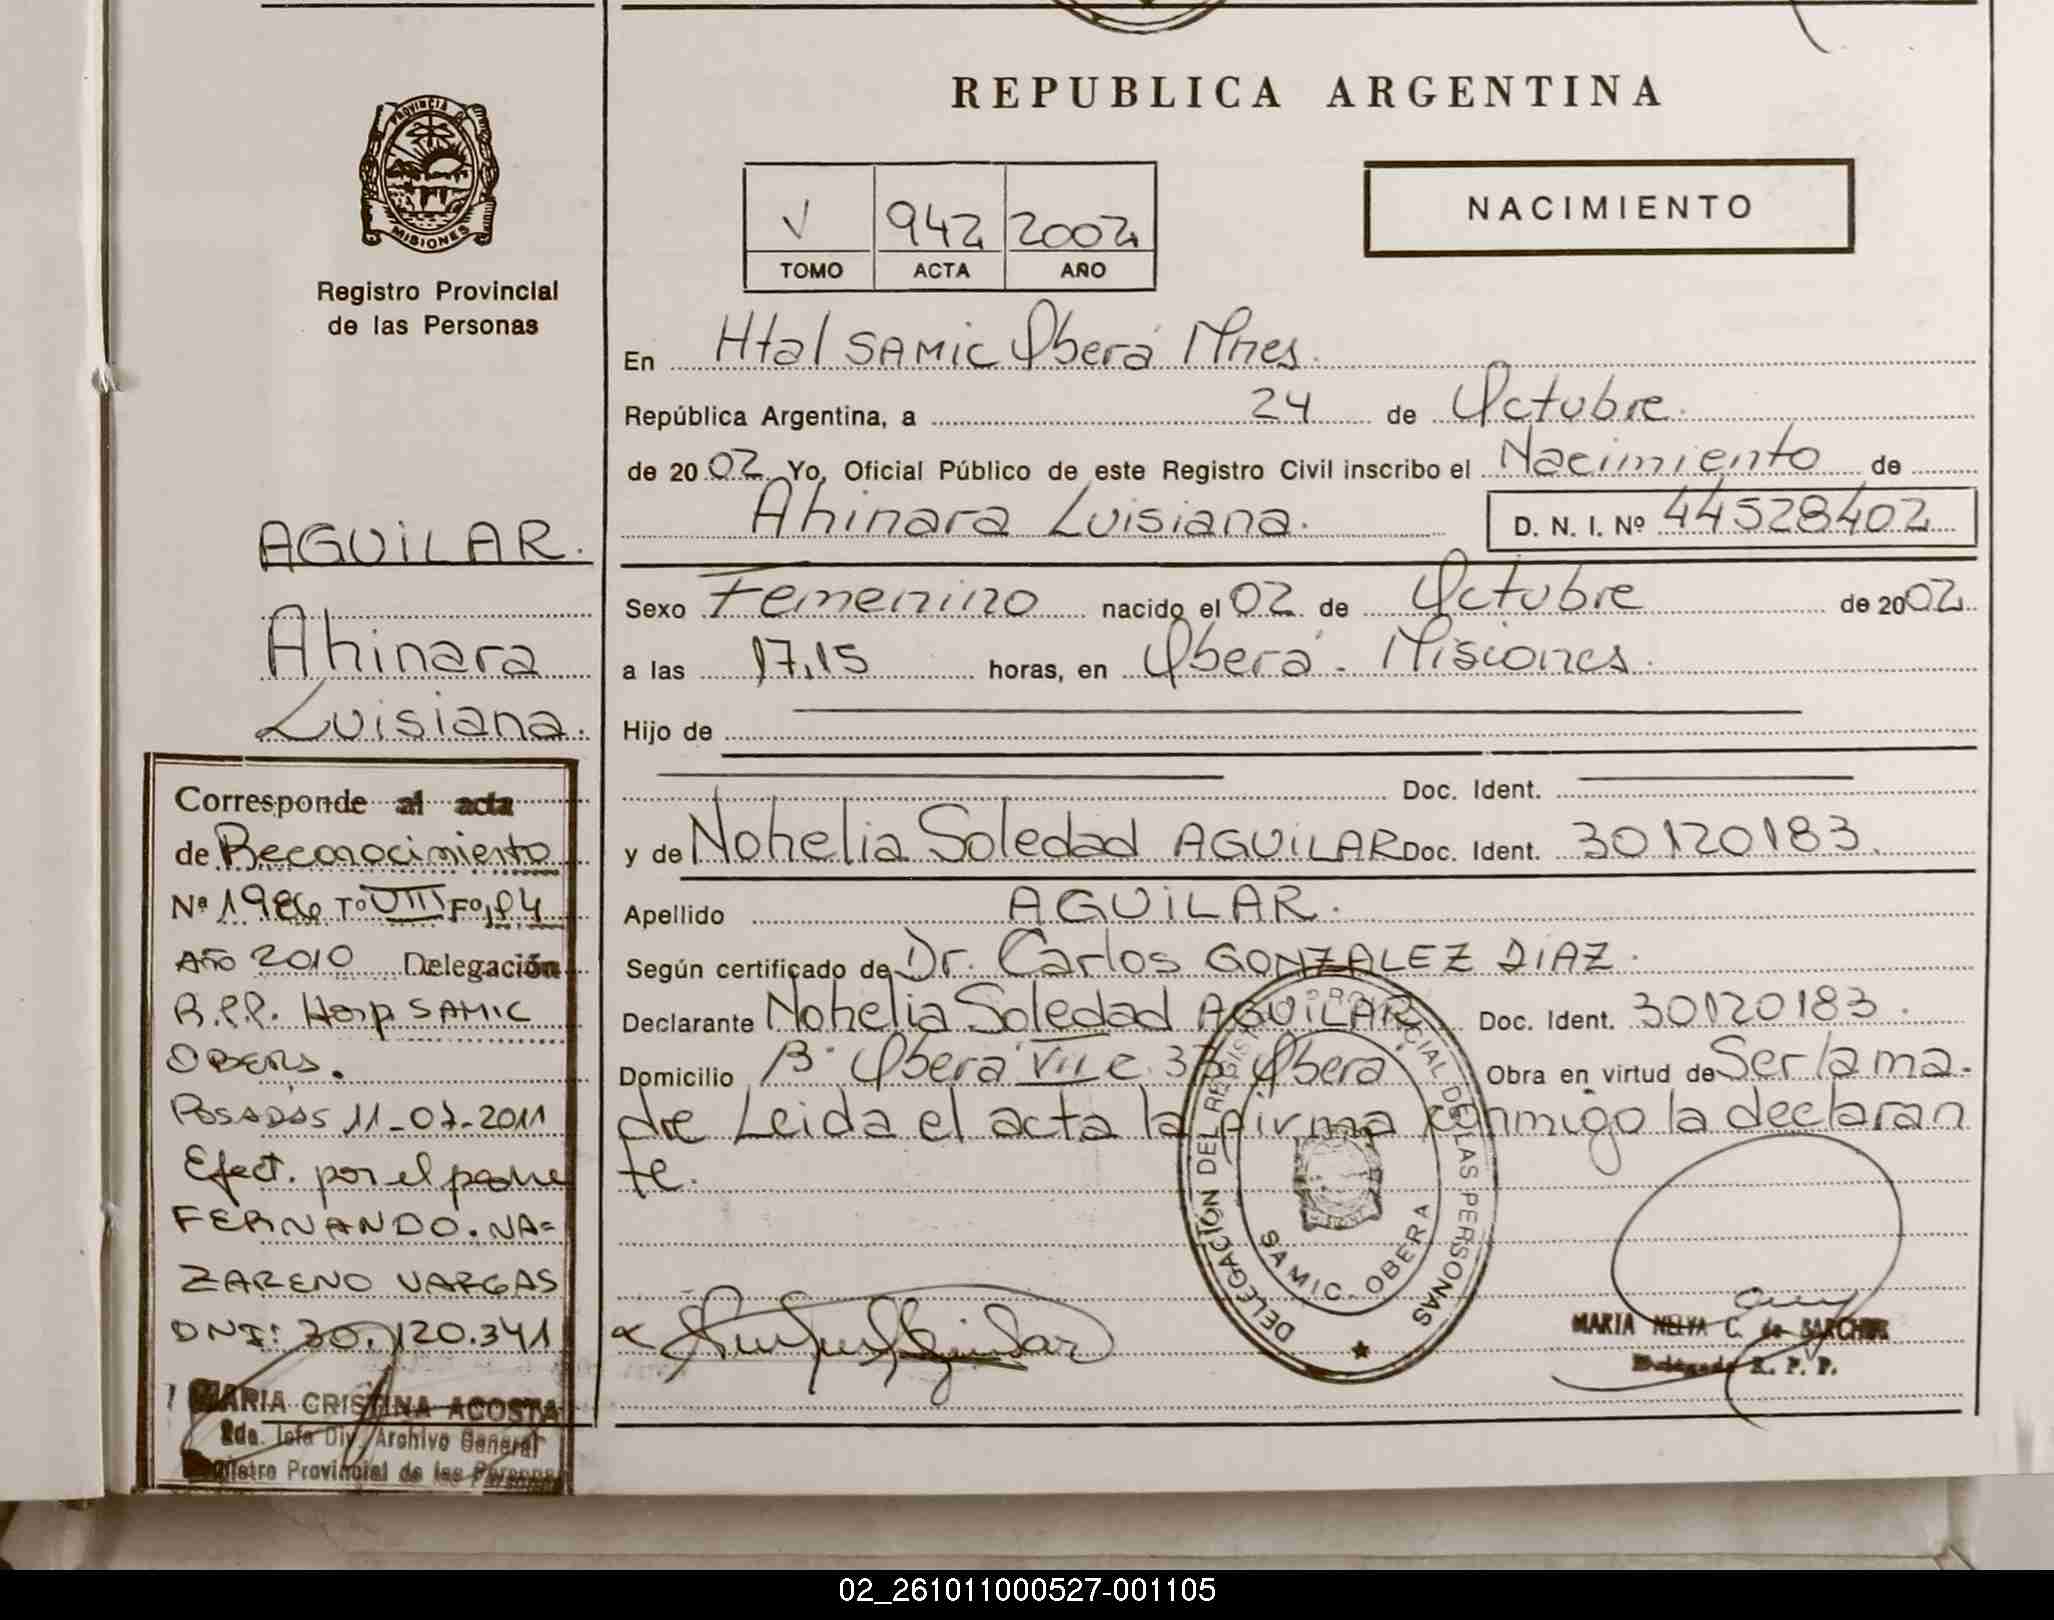 REPUBLICA ARGENTINA
PROVINCIA DE
MISIONES
Registro Provincial
de las Personas
V 942 2002
TOMO ACTA AÑO
NACIMIENTO
En Htal SAMIC Oberá Mnes.
República Argentina, a 24 de Octubre.
de 2002. Yo, Oficial Público de este Registro Civil inscribo el Nacimiento de
Ahinara Luisiana. D. N. I. Nº 44528402
AGUILAR.
Ahinara
Luisiana.
Sexo Femenino nacido el 02 de Octubre de 2002.
a las 17,15 horas, en Oberá - Misiones.
Hijo de
Doc. Ident.
y de Nohelia Soledad AGUILAR Doc. Ident. 30120183.
Apellido AGUILAR.
Según certificado de Dr. Carlos GONZALEZ DIAZ.
Declarante Nohelia Soledad AGUILAR Doc. Ident. 30120183.
Domicilio Bº Oberá VII c. 33 Oberá Obra en virtud de Ser la ma-
dre Leida el acta la firma conmigo la declaran
te.
DELEGACIÓN DEL REGISTRO PROVINCIAL DE LAS PERSONAS
SAMIC. OBERA
MARIA NELVA C. de
Delegada R. P. P.
Corresponde al acta
de Reconocimiento
Nº 1986 Tº VIII Fº
Año 2010 Delegación
R.P.P. Hosp SAMIC
OBERA.
POSADAS 11-07-2011
Efect. por el padre
FERNANDO. NA=
ZARENO VARGAS
DNI: 30.120.341
MARIA CRISTINA ACOSTA
2da. Jefa Div. Archivo General
Registro Provincial de las Personas
02_261011000527-001105